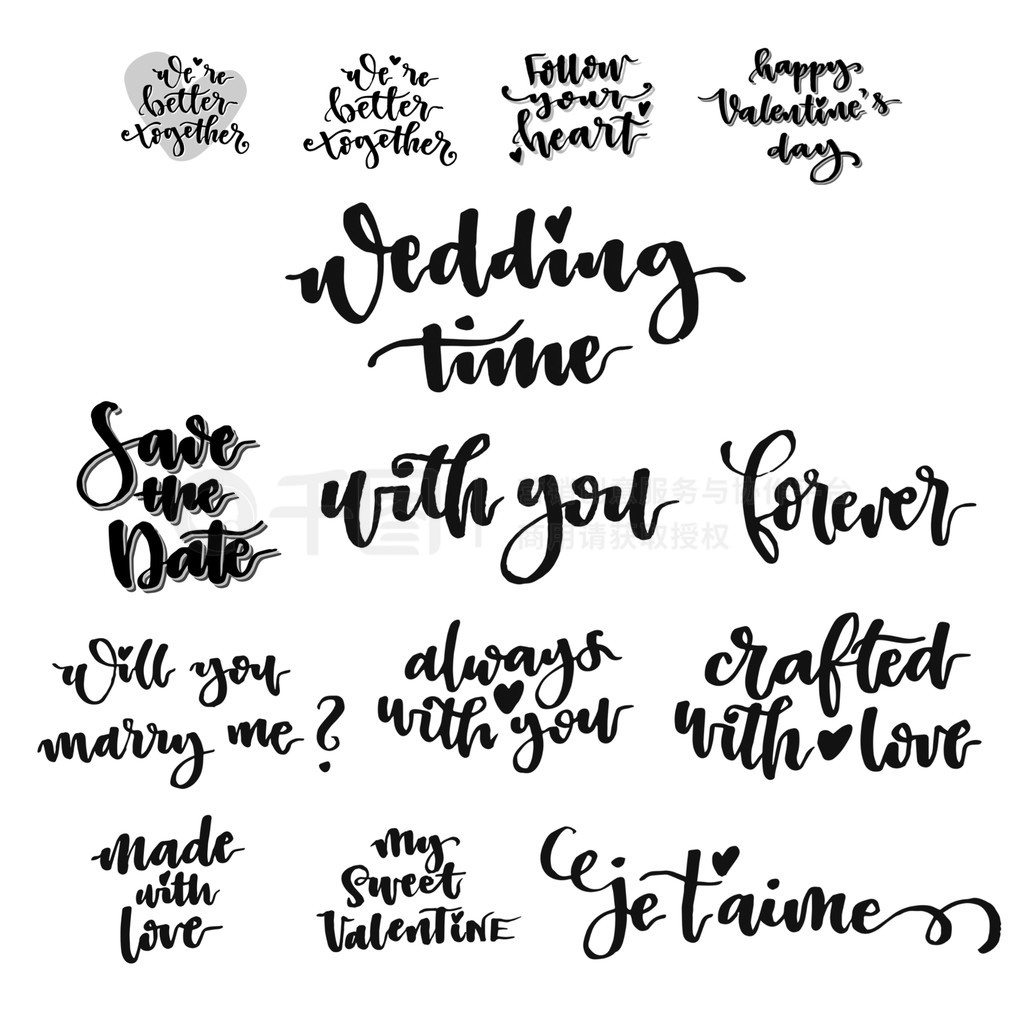 We're
better
together
We're
better
together
Follow
your
heart
happy
Valentine's
day
Wedding
time
Save
the
Date
with you
forever
will you
marry me?
always
with you
crafted
with love
made
with
love
my
Sweet
Valentine
je t'aime
商用请获取授权